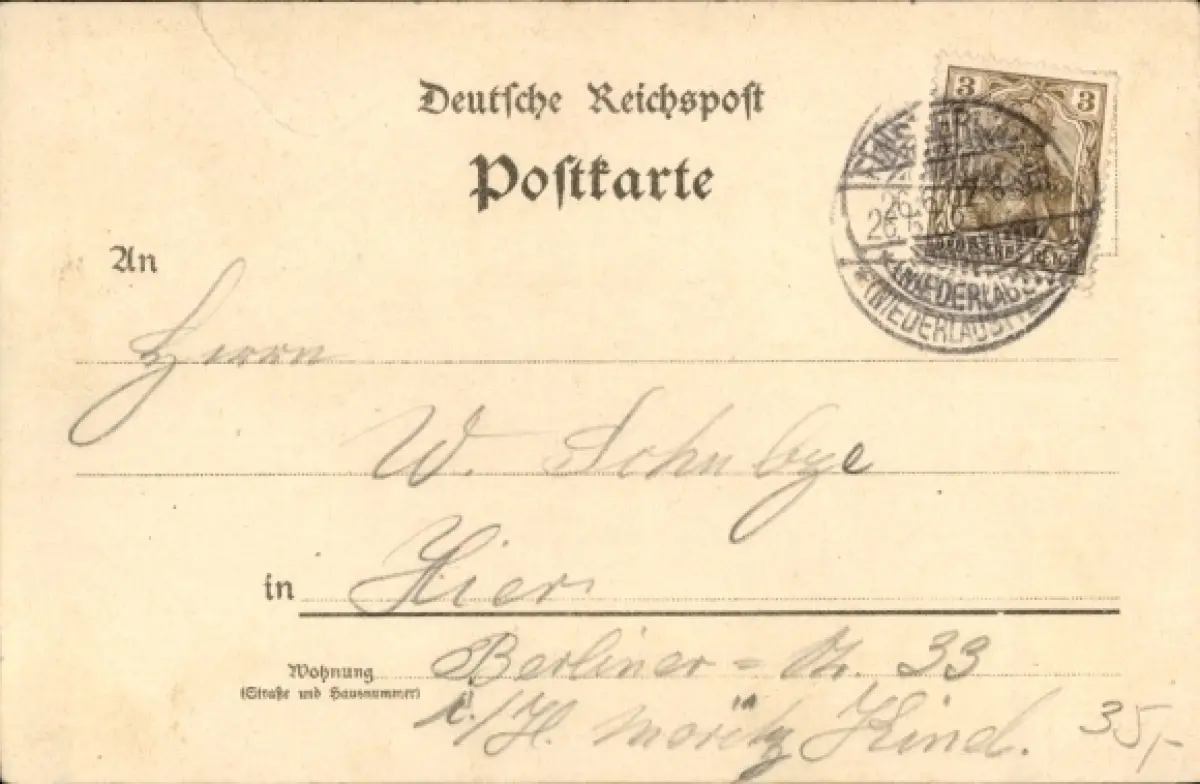 Deutsche Reichspost
3 3
Postkarte
26.6.02
26.6.02
An
(NIEDERLAUSITZ)
Herrn
W. Schubye
in Hier
Wohnung Berliner = Str. 33
(Straße und Hausnummer)
i./H. Moritz Kind.
35,-